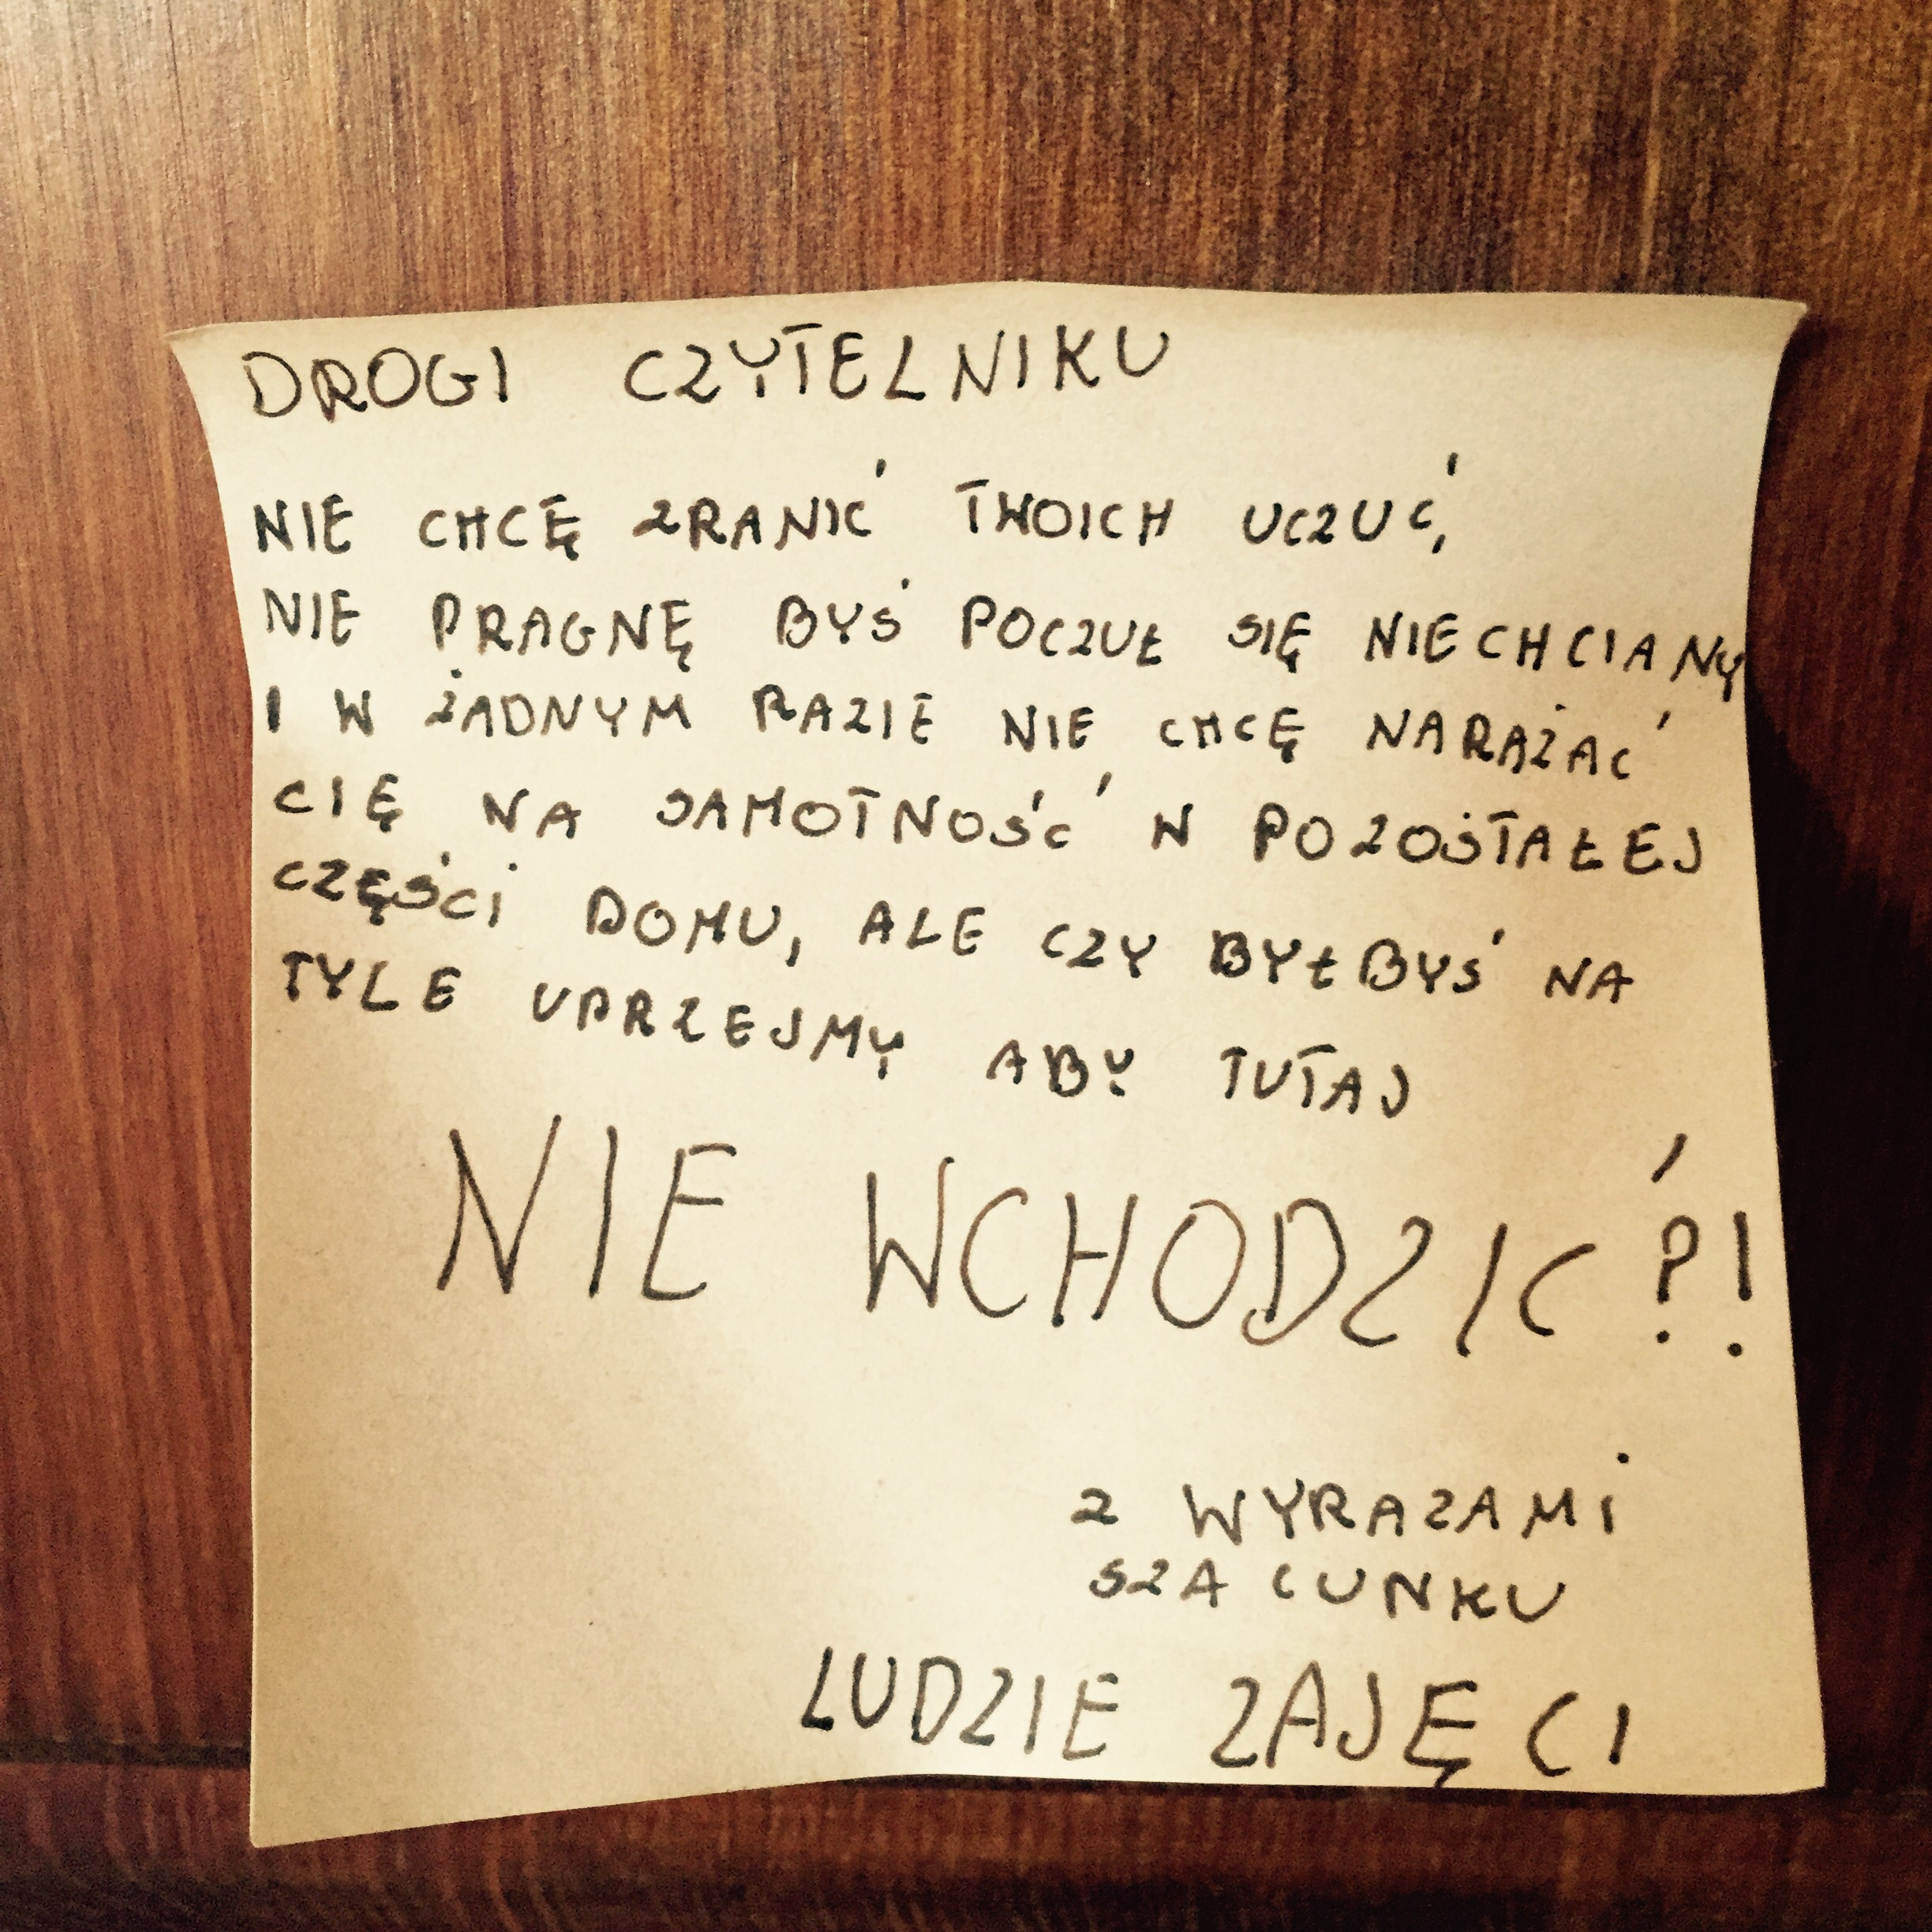 DROGI CZYTELNIKU
NIE CHCĘ ZRANIĆ TWOICH UCZUĆ,
NIE PRAGNĘ BYŚ POCZUŁ SIĘ NIECHCIANY
I W ŻADNYM RAZIE NIE CHCĘ NARAŻAĆ
CIĘ NA SAMOTNOŚĆ W POZOSTAŁEJ
CZĘŚCI DOMU, ALE CZY BYŁBYŚ NA
TYLE UPRZEJMY ABY TUTAJ
NIE WCHODZIĆ?!
Z WYRAZAMI
SZACUNKU
LUDZIE ZAJĘCI